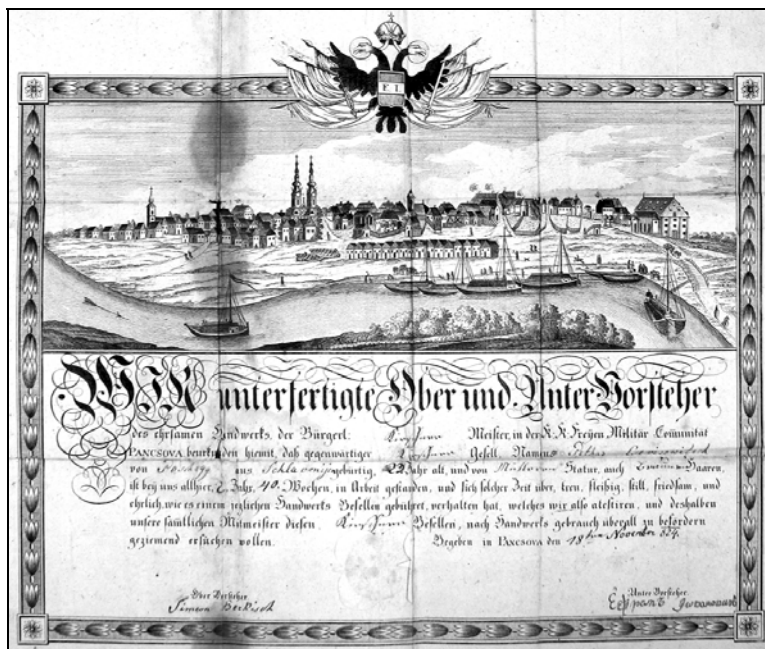 F. I.
WIR unterfertigte Ober und Unter Vorsteher
des ehrsamen Handwerks, der Bürgerl: Kirschner Meister, in der K. K. Freyen Militär Comunität
PANCSOVA beurkunden hiemit, daß gegenwärtiger Kirschner Gesell, Namens
von aus Schlavonien gebürtig, 22 Jahr alt, und von Mittleren Statur, auch Haaren,
ist bey uns allhier, Jahr, 40 Wochen, in Arbeit gestanden, und sich solcher Zeit über, treu, fleißig, still, friedsam, und
ehrlich, wie es einem jeglichen Handwerks Gesellen gebühret, verhalten hat, welches wir also atestiren, und deshalben
unsere sämtlichen Mitmeister diesen, Kirschner Gesellen, nach Handwerks gebrauch überall zu befördern
geziemend ersuchen wollen.
Gegeben in PANCSOVA den 18ten November 824.
Ober Vorsteher
Unter Vorsteher
Simeon